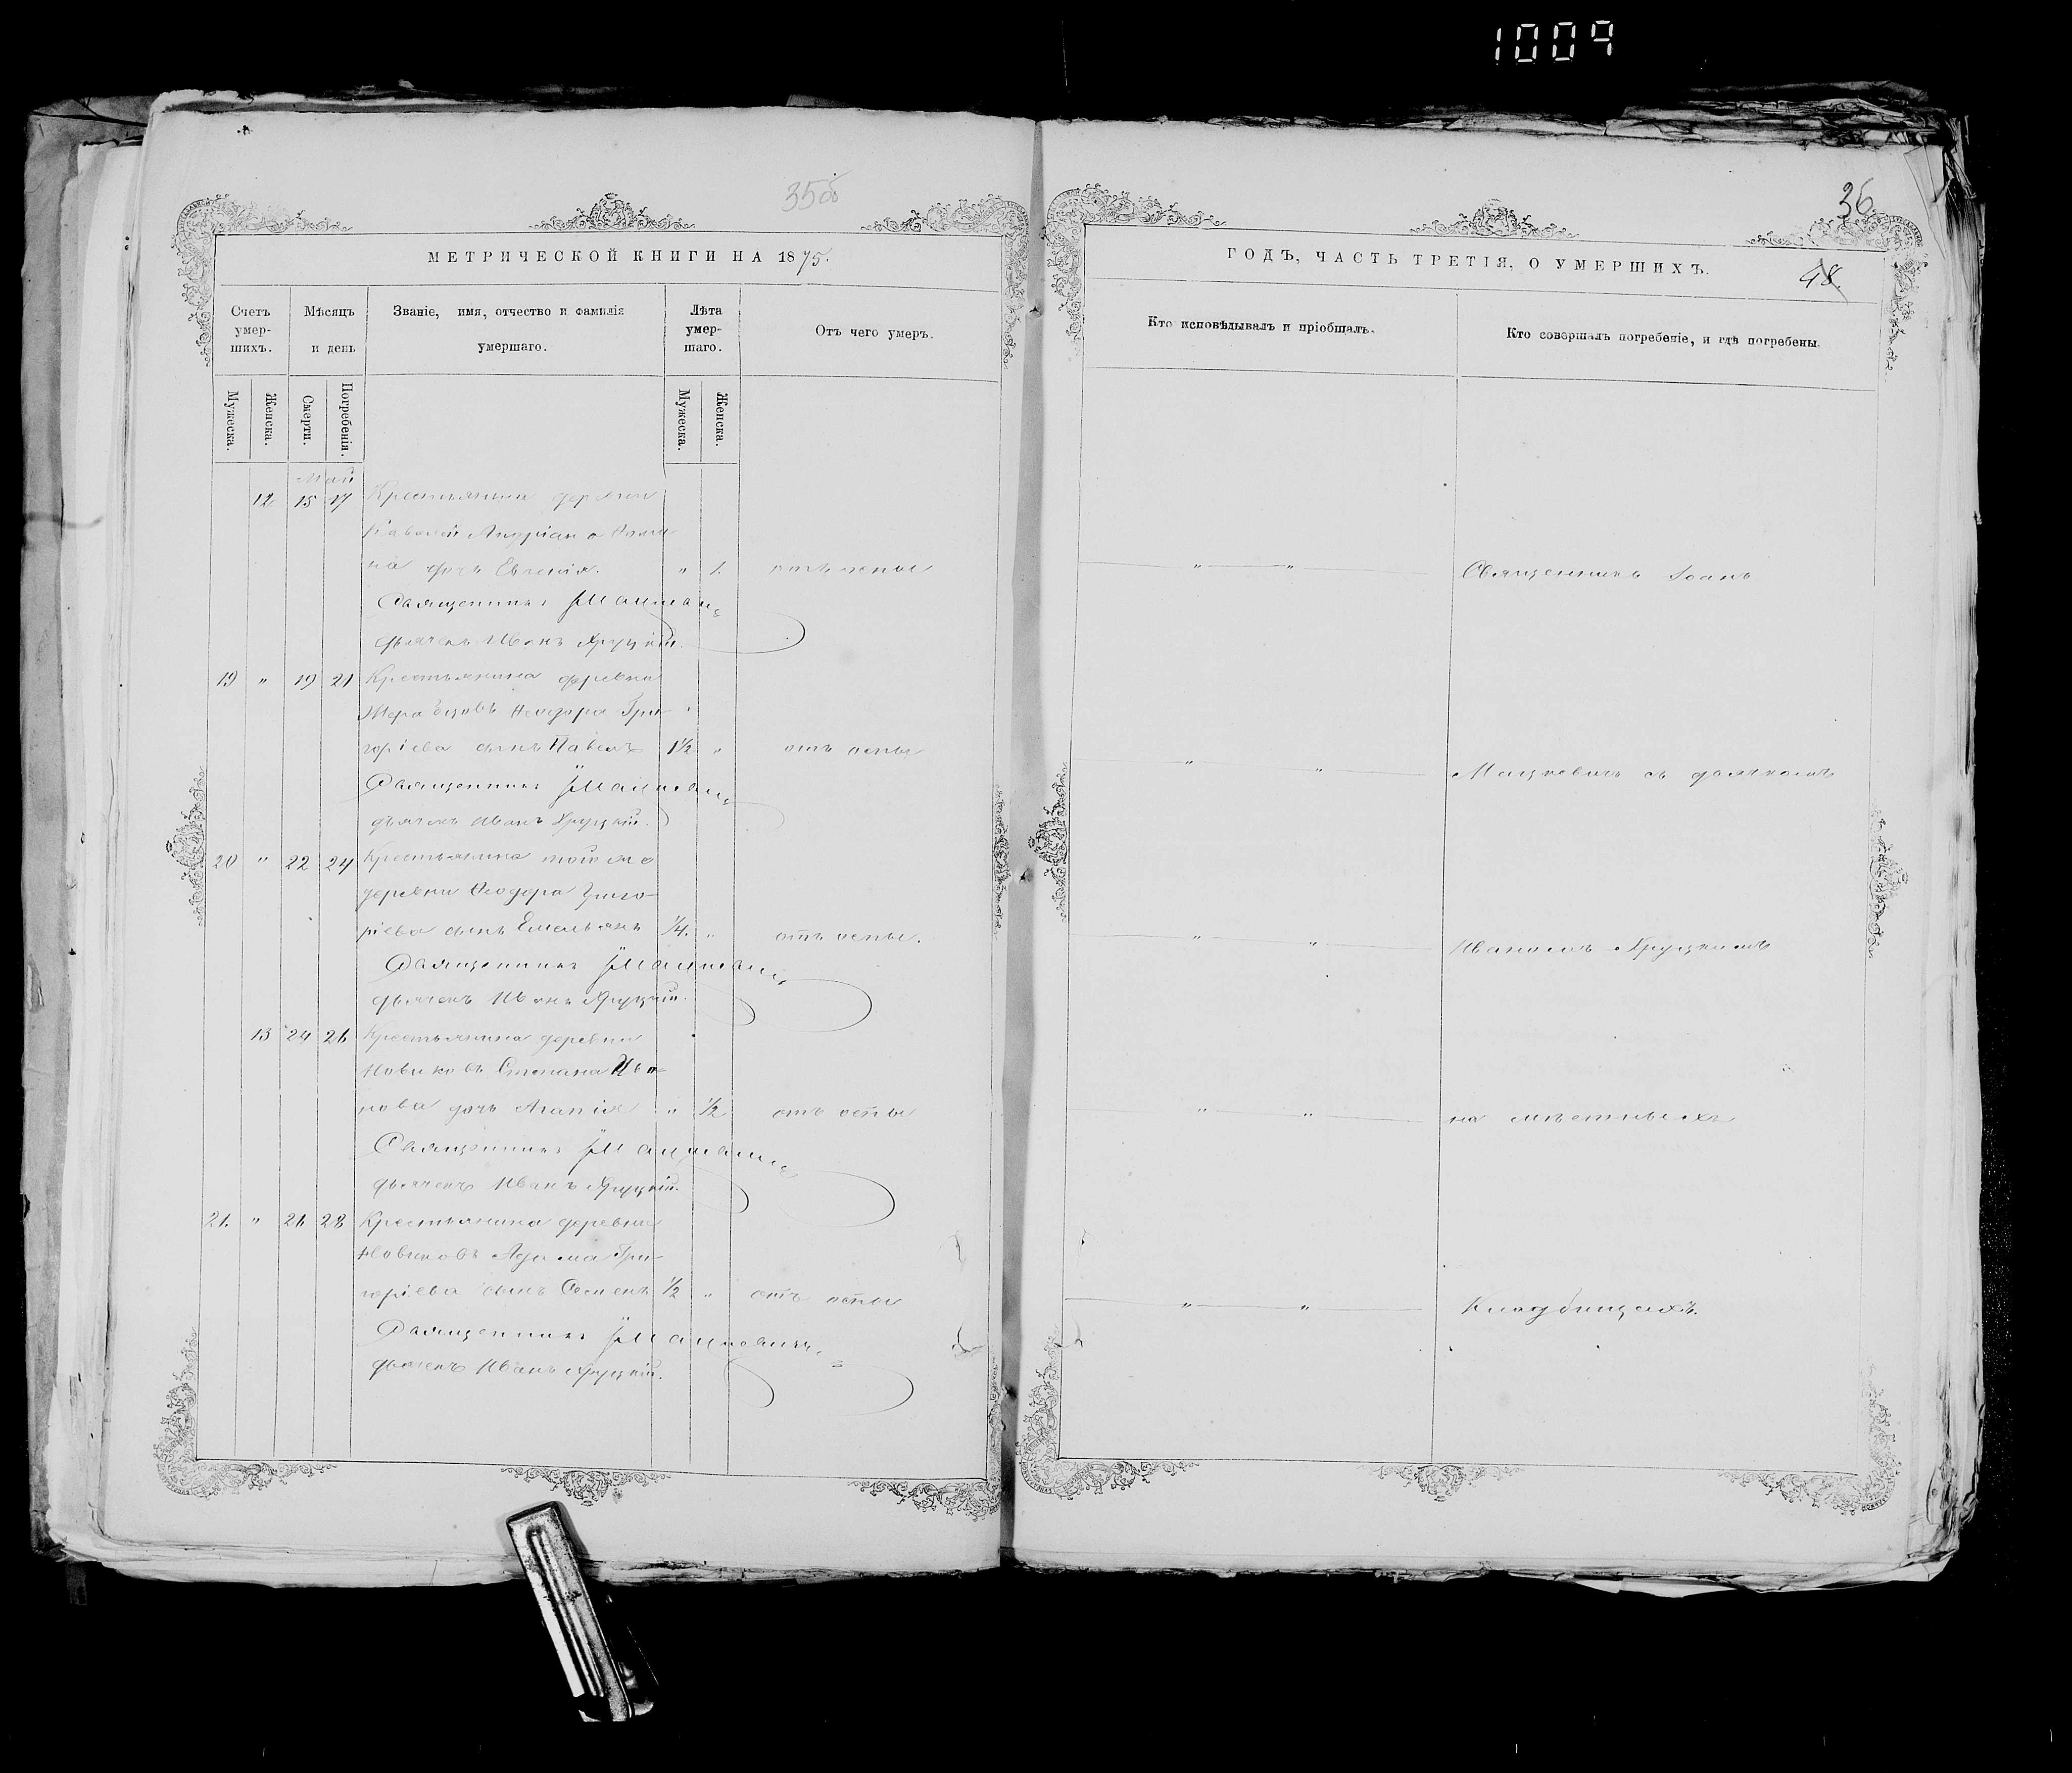 1009
35об
МЕТРИЧЕСКОЙ КНИГИ НА 1875.
Счетъ умер-шихъ.
Мѣсяцъ и день
Званіе, имя, отчество и фамилія умершаго.
Лѣта умер-шаго.
Отъ чего умеръ.
Мужеска.
Женска.
Смерти.
Погребенія.
Мужеска.
Женска.
Май
12 15 17 Крестьянина деревни
Андріана
на дочь Евгенія. " 1. отъ оспы
Священникъ
дьячекъ Иванъ Хруцкій.
19 " 19 21 Крестьянина деревни
Ѳеодора Гри-
горіева сынъ Павелъ 1½ " отъ оспы
Священникъ
дьячекъ Иванъ Хруцкій.
20 " 22 24 Крестьянина той же
деревни Ѳеодора Григо-
ріева сынъ Емельянъ ¼. " отъ оспы.
Священникъ
дьячекъ Иванъ Хруцкій.
13 24 26 Крестьянина деревни
Новиковъ Степана Ива-
нова дочь Агапія " ½ отъ оспы
Священникъ
дьячекъ Иванъ Хруцкій.
21. " 26 28 Крестьянина деревни
Новиковъ Адама Гри-
горіева сынъ Семенъ ½ " отъ оспы
Священникъ
дьячекъ Иванъ Хруцкій.
36
48.
ГОДЪ, ЧАСТЬ ТРЕТІЯ, О УМЕРШИХЪ.
Кто исповѣдывалъ и пріобщалъ.
Кто совершалъ погребеніе, и гдѣ погребены.
" " Священникъ Іоанъ
" " Мацкевичъ съ дьячкомъ
" " Иваномъ Хруцкимъ
" " на мѣстныхъ
" " Кладбищахъ.